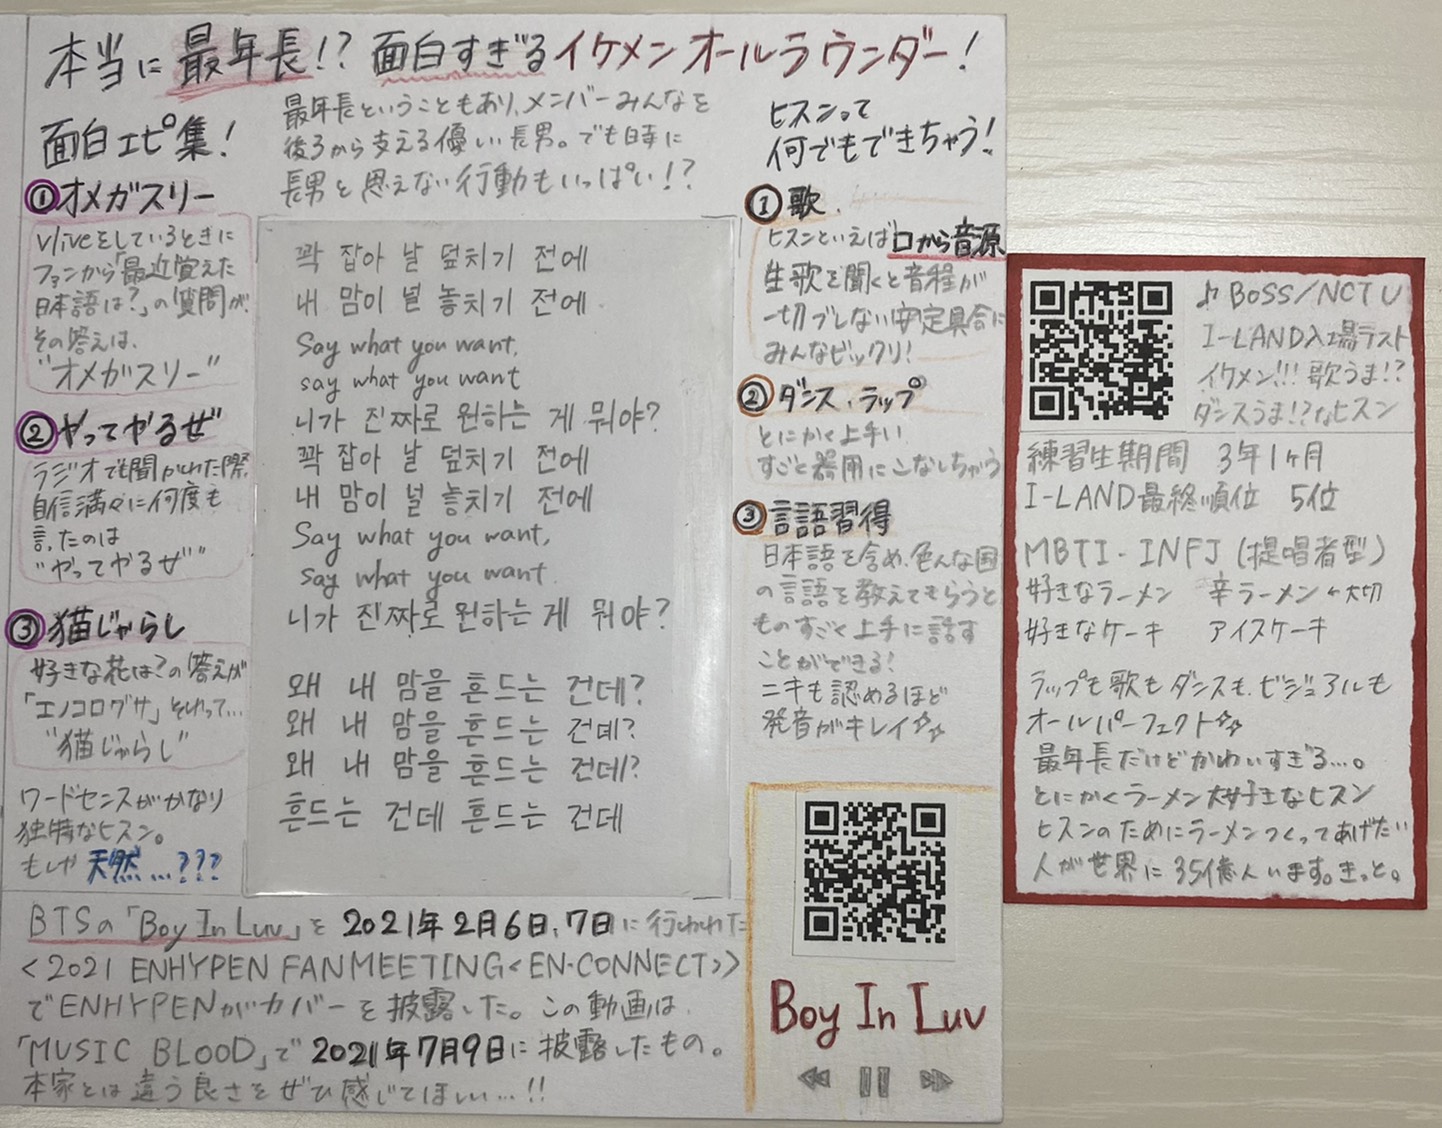 本当に最年長!? 面白すぎるイケメンオールラウンダー!
最年長ということもあり、メンバーみんなを
後ろから支える優しい長男。でも時に
長男と思えない行動もいっぱい!?
面白エピ集!
①オメガスリー
Vliveをしているときに
ファンから「最近覚えた
日本語は?」の質問が、
その答えは、
"オメガスリー"
②やってやるぜ
ラジオでも聞かれた際、
自信満々に何度も
言ったのは
"やってやるぜ"
③猫じゃらし
好きな花は?の答えが
「エノコログサ」それって…
"猫じゃらし"
ワードセンスがかなり
独特なヒスン。
もしや天然…???
꽉 잡아 날 덮치기 전에
내 맘이 널 놓치기 전에
Say what you want,
say what you want
니가 진짜로 원하는 게 뭐야?
꽉 잡아 날 덮치기 전에
내 맘이 널 놓치기 전에
Say what you want,
say what you want
니가 진짜로 원하는 게 뭐야?
왜 내 맘을 흔드는 건데?
왜 내 맘을 흔드는 건데?
왜 내 맘을 흔드는 건데?
흔드는 건데 흔드는 건데
ヒスンって
何でもできちゃう!
①歌
ヒスンといえば口から音源
生歌を聞くと音程が
一切ブレない安定具合に
みんなビックリ!
②ダンス・ラップ
とにかく上手い
すごと器用にこなしちゃう
③言語習得
日本語を含め、色んな国
の言語を教えてもらうと
ものすごく上手に話す
ことができる!
ニキも認めるほど
発音がキレイ☆☆
BTSの「Boy In Luv」を2021年2月6日、7日に行われた
<2021 ENHYPEN FANMEETING<EN-CONNECT>>
でENHYPENがカバーを披露した。この動画は、
「MUSIC BLOOD」で2021年7月9日に披露したもの。
本家とは違う良さをぜひ感じてほしい…!!
Boy In Luv
♪BOSS/NCT U
I-LAND入場テスト
イケメン!!! 歌うま!?
ダンスうま!?なヒスン
練習生期間 3年1ヶ月
I-LAND最終順位 5位
MBTI・INFJ(提唱者型)
好きなラーメン 辛ラーメン←大切
好きなケーキ アイスケーキ
ラップも歌もダンスも、ビジュアルも
オールパーフェクト☆☆
最年長だけどかわいすぎる…。
とにかくラーメン大好きなヒスン
ヒスンのためにラーメンつくってあげたい
人が世界に35億人います。きっと。